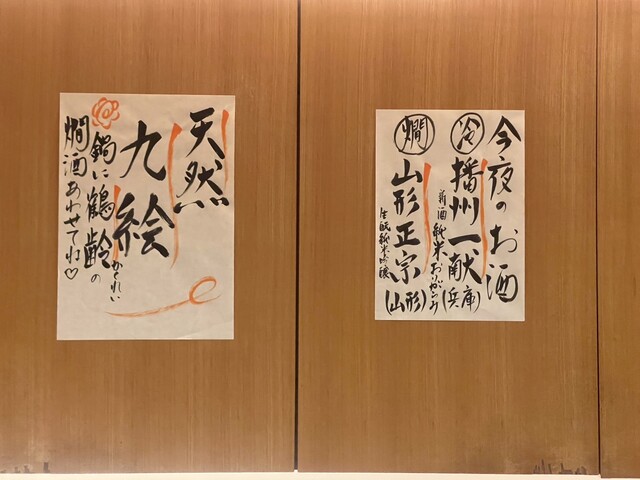 今夜のお酒
冷 播州一献（兵庫）
新酒 純米おりがらみ
燗 山形正宗（山形）
生酛純米吟醸
天然
九絵
鍋に鶴齢の
かくれい
燗酒あわせてね♡